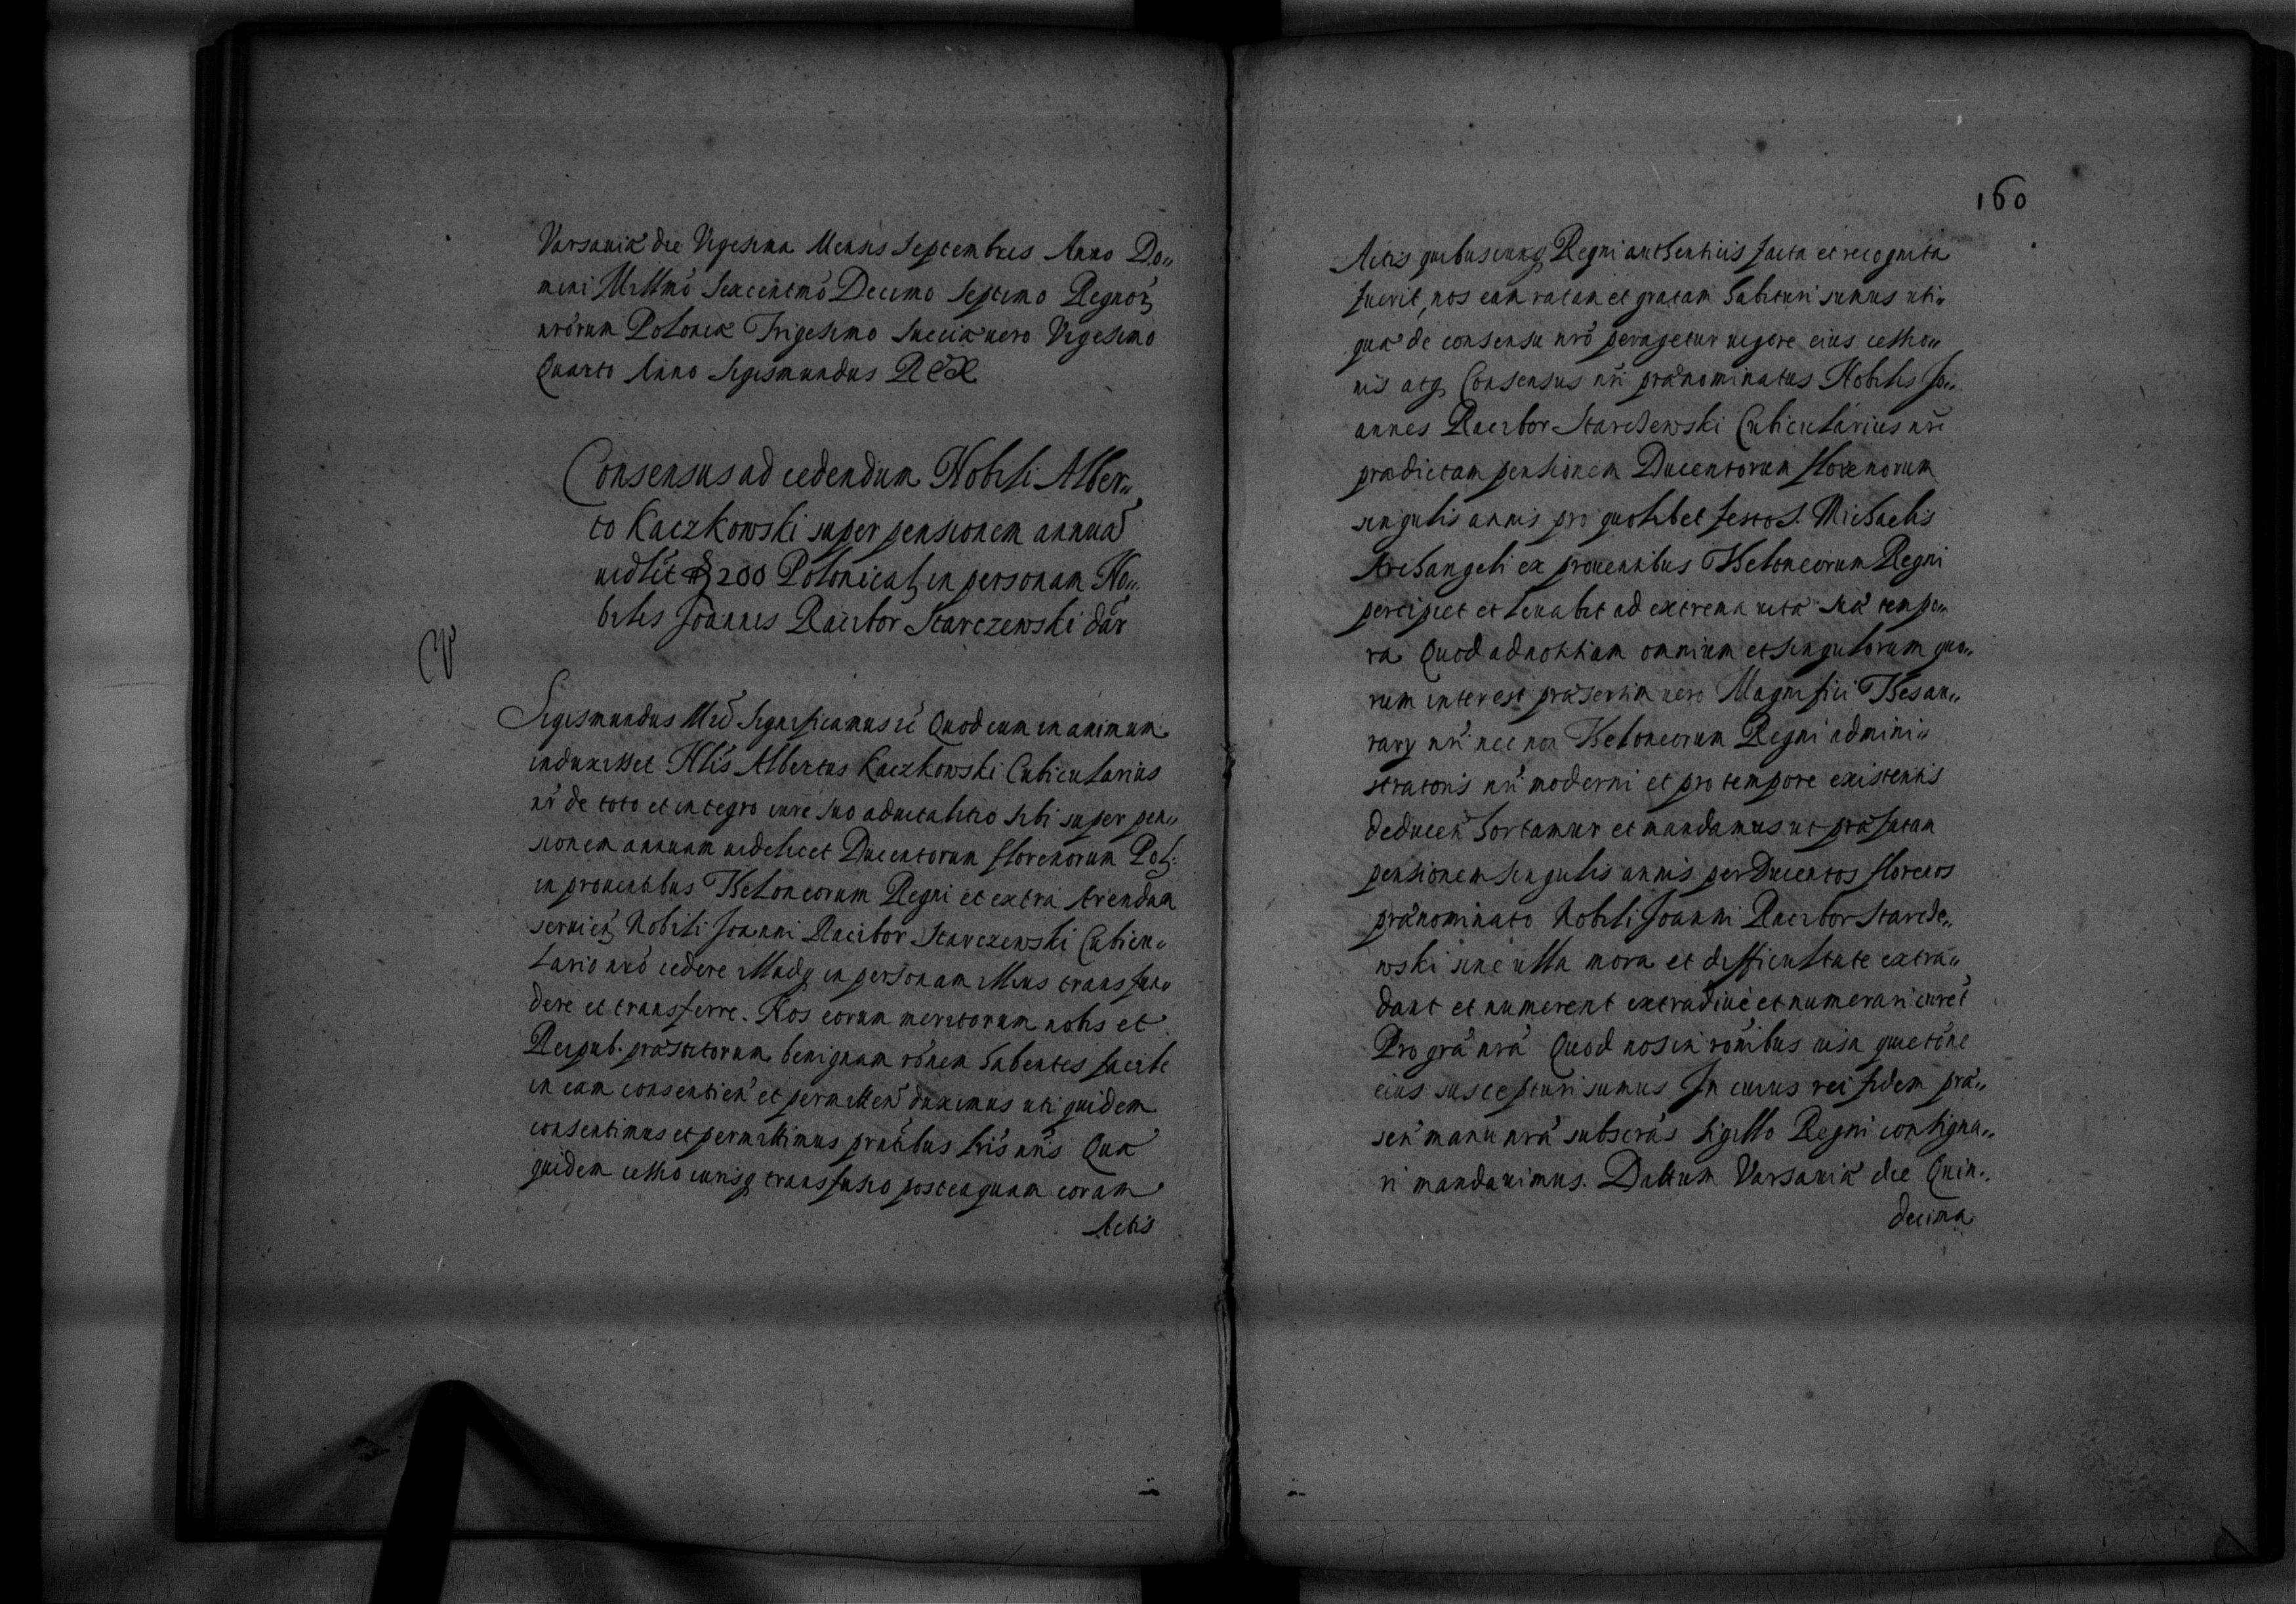 Varsaviæ die Vigesima Mensis Septembris Anno Do„
mini Millmõ Sexcentmõ Decimo Septimo Regnoꝝ
nr̃orum Poloniæ Trigesimo Sueciæ vero Vigesimo
Quarto Anno Sigismundus REX
Consensus ad cedendum Nobili Alber„
to Kaczkowski super pensionem annuã
vidlit fl 200 Polonical, in personam No„
bilis Joannis Racibor Starczewski dãr
Sigismundus Significamus Quod cum in animum
induxisset Nlis Albertus Kaczkowski Cubicularius
nr̃ de toto et integro iure suo advitalitio sibi super pen„
sionem annuam videlicet Ducentorum florenorum Pol:
in proventibus Theloneorum Regni et extra Arendam
servien̄ Nobili Joanni Racibor Starczewski Cubicu„
lario nr̃o cedere illudq, in personam illius transfun„
dere et transferre. Nos eorum meritorum nobis et
Reipub. præstitorum benignam rõnem habentes facile
in eam consentien̄ et permitten̄ duximus uti quidem
consentimus et permittimus præntibus lr̃is nr̃is Quæ
quidem cessio iurisq, transfusio posteaquam coram
Actis
160
Actis quibuscunq, Regni authenticis facta et recognita
fuerit, nos eam ratam et gratam habituri sumus uti„
quæ de consensu nr̃o peragetur vigore eius cessio„
nis atq, Consensus nr̃i prænominatus Nobilis Jo„
annes Racibor Starchewski Cubicularius nr̃
prædictam pensionem Ducentorum florenorum
singulis annis pro quolibet festo S. Michaelis
Archangeli ex proventibus Theloneorum Regni
percipiet et levabit ad extrema vitæ suæ tempo„
ra Quod ad notitiam omnium et singulorum quo„
rum interest præsertim vero Magnifici Thesau„
rary nr̃i nec non Theloneorum Regni admini„
stratoris nr̃i moderni et pro tempore existentis
deducen̄ hortamur et mandamus ut præfatam
pensionem singulis annis per Ducentos florenos
prænominato Nobili Joanni Racibor Starche„
wski sine ulla mora et difficultate extra„
dant et numerent extradivè et numerari curet
Pro grã nr̃a Quod nos in rõnibus visa quietõne
eius suscepturi sumus In cuius rei fidem præ„
sen̄ manu nr̃a subscr̃as sigillo Regni consigna„
ri mandavimus. Dattum Varsaviæ die Quin„
decima